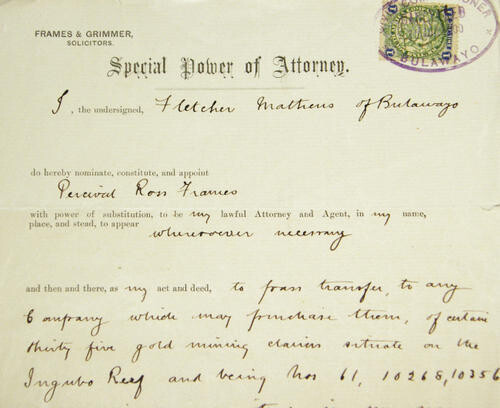 FRAMES & GRIMMER,
SOLICITORS.
BULAWAYO
Special Power of Attorney.
I, the undersigned, Fletcher Mathens of Bulawayo
do hereby nominate, constitute, and appoint
Percival Ross Frames
with power of substitution, to be my lawful Attorney and Agent, in my name,
place, and stead, to appear
wheresoever necessary
and then and there, as my act and deed, to pass transfer, to any
Company which may purchase them, of certain
thirty five gold mining claims situate on the
Ingubo Reef and being Nos 61, 10268, 10356